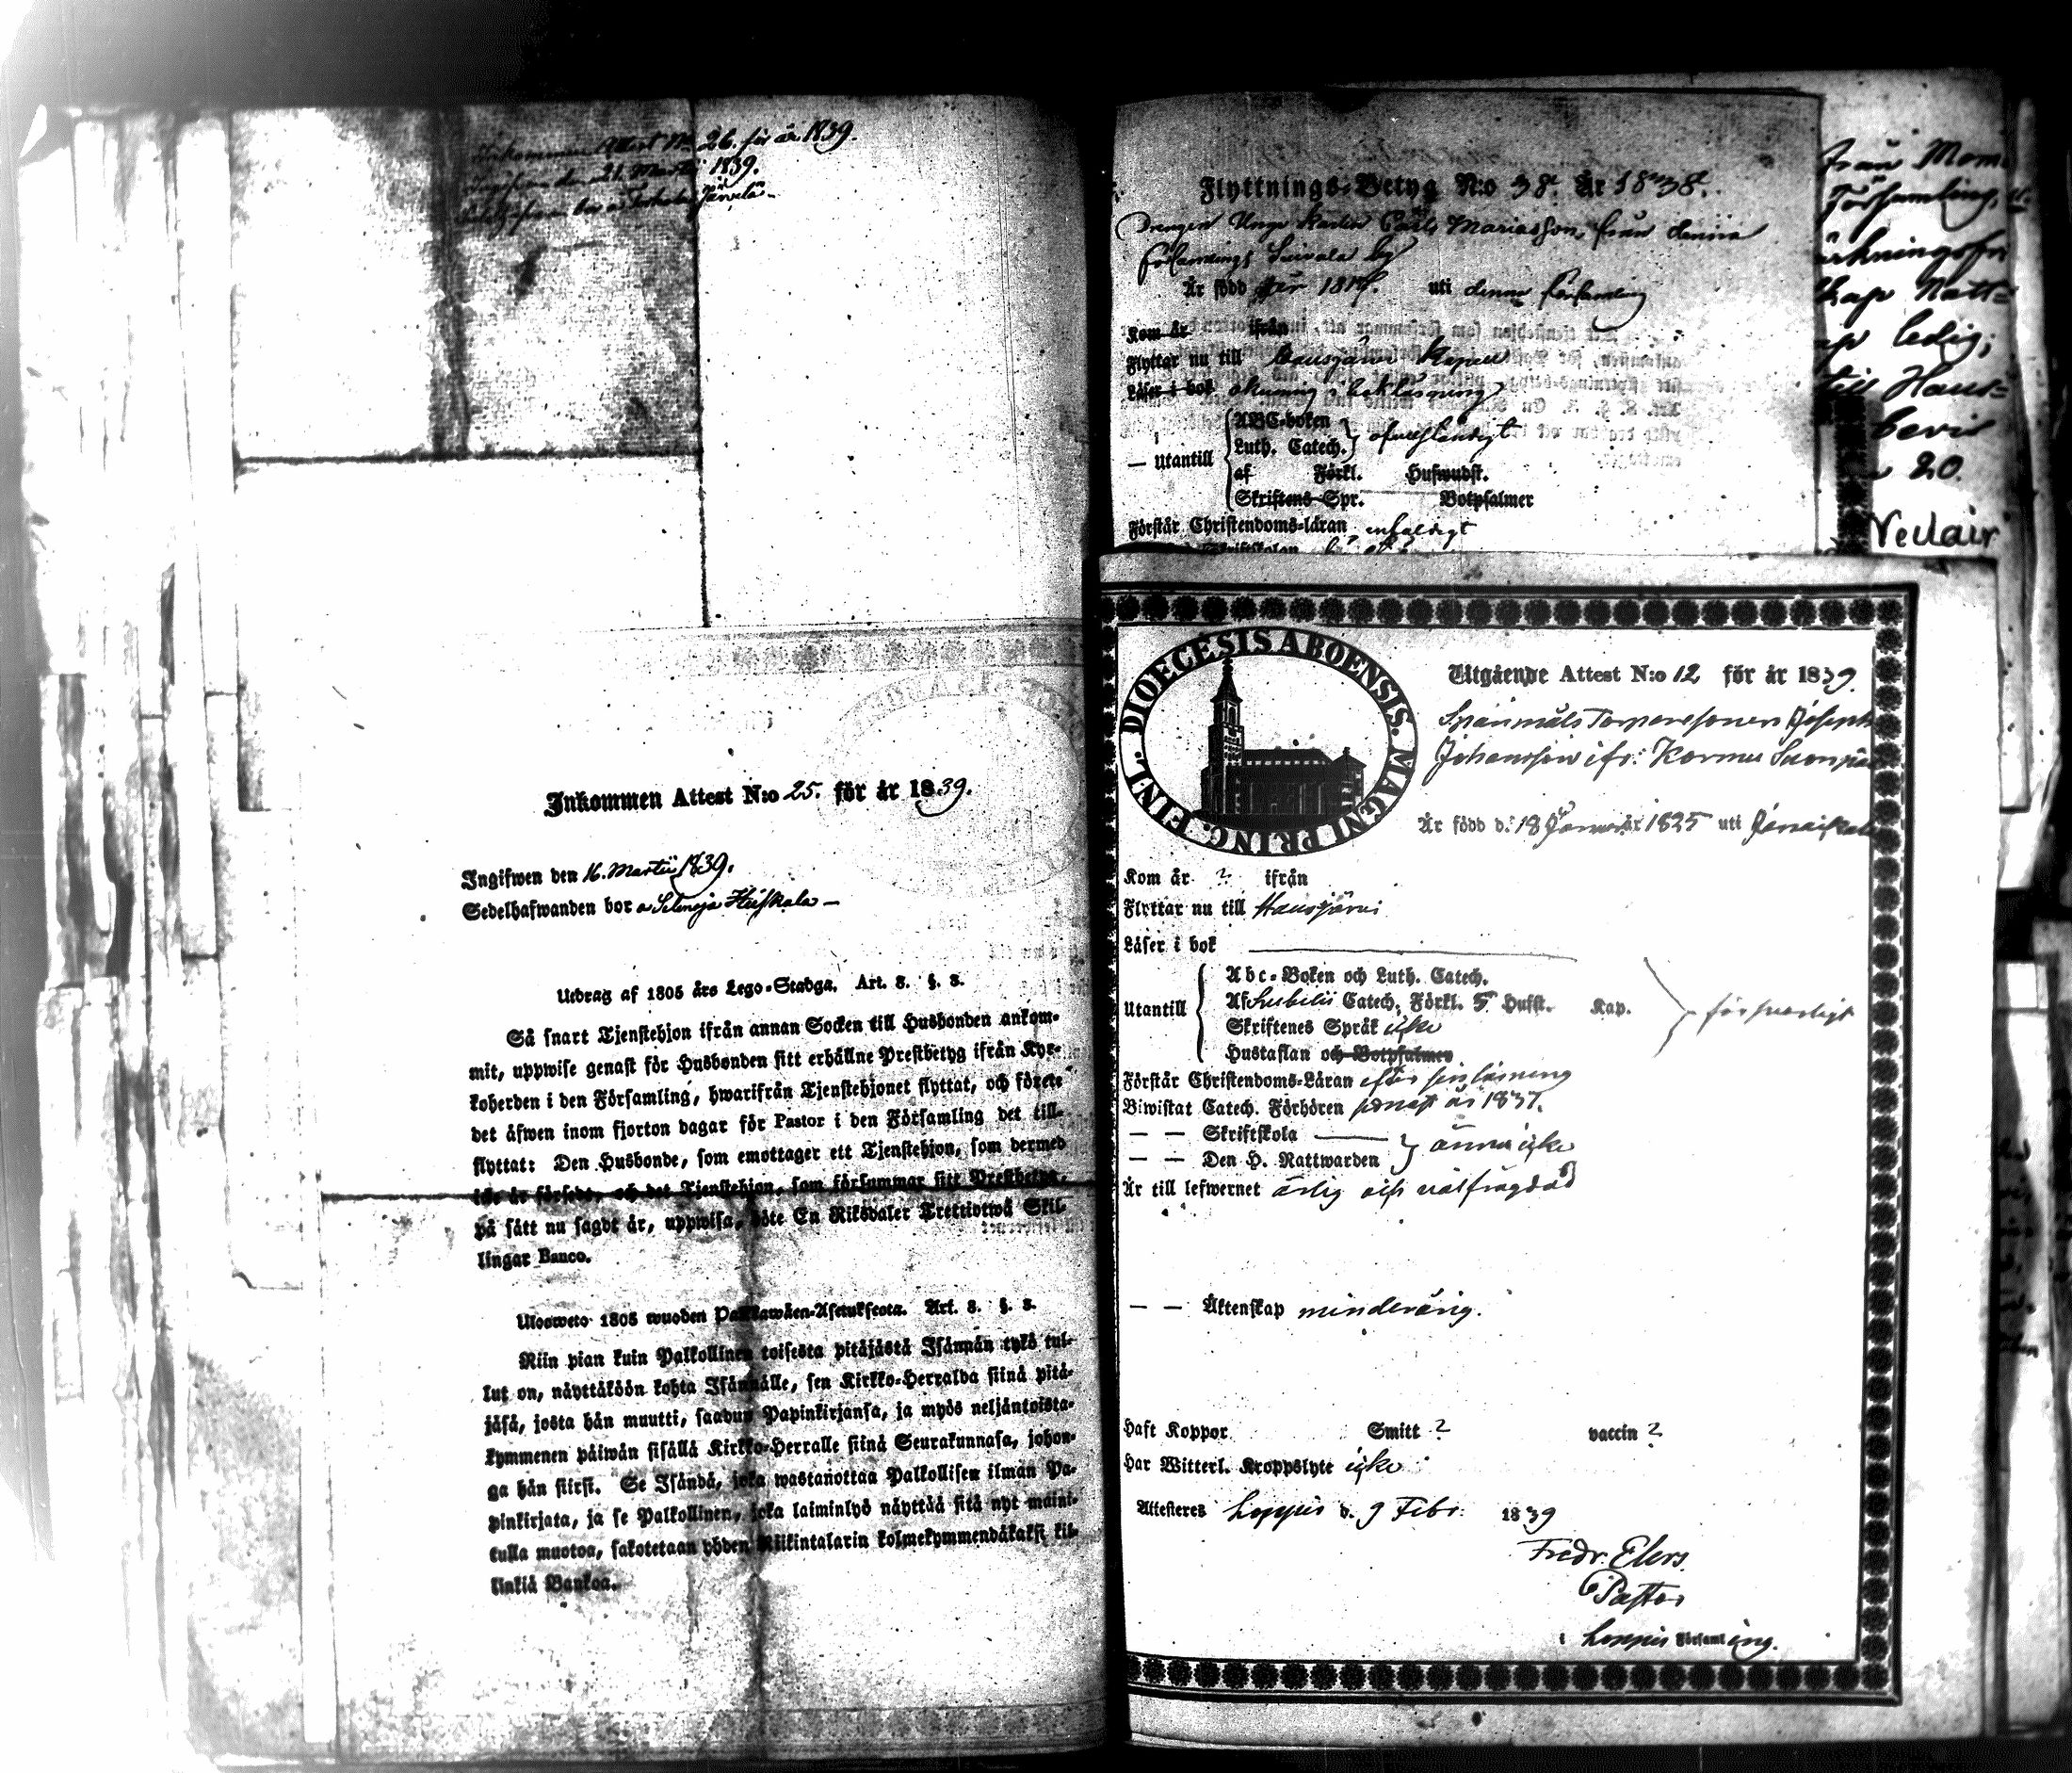 Inkommen Attest N:o 26. för år 1839.
Ingifwen den 21. Martii 1839.
Järvelä
Inkommen Attest N:o 25. för år 1839.
Ingifwen den 16. Martii 1839.
Sedelhafwanden bor a Selenoja Huiskala
Utdrag af 1805 års Lego-Stadga. Art. 8. §. 8.
Så snart Tjenstehjon ifrån annan Socken till Husbonden ankom-
mit, uppwise genast för Husbonden sitt erhållne Prestbetyg ifrån Kyr-
koherden i den Församling, hwarifrån Tjenstehjonet flyttat, och förete
det äfwen inom fjorton dagar för Pastor i den Församling det till-
flyttat: Den Husbonde, som emottager ett Tjenstehjon, som dermed
icke är försedt, och det Tjenstehjon, som försummar sitt Prestbetyg,
på sätt nu sagdt är, uppwisa, böte En Riksdaler Trettiotwå Skil-
lingar Banco.
Ulosweto 1805 wuoden Palkkawäen-Asetuksesta. Art. 8. §. 8.
Niin pian kuin Palkollinen toisesta pitäjästä Isännän tykö tul-
lut on, näyttäköön kohta Isännälle, sen Kirkko-Herralda siinä pitä-
jäsä, josta hän muutti, saadun Papinkirjansa, ja myös neljäntoista-
kymmenen päiwän sisällä Kirkko-Herralle siinä Seurakunnasa, johon-
ga hän siirsi. Se Isändä, joka wastanottaa Palkollisen ilman Pa-
pinkirjata, ja se Palkollinen, joka laiminlyö näyttää sitä nyt maini-
tulla muotoa, sakotetaan yhden Riikintalarin kolmekymmendäkaksi kil-
linkiä Bankoa.
Flyttnings-Betyg N:o 38. År 1838.
Drengen Unge Karlen Carls Mariasson, från denna
Församlings by
År född år 181 uti denna församling
Kom år ifrån
Flyttar nu till Hausjärvi Kapell
Läser i bok okunnig i bokläsning
— Utantill
ABC-boken
Luth. Catech.
af Förkl. Hufwudst.
Skriftens Spr. Botpsalmer
Förstår Christendoms-läran enfaldigt
från
Församling,
Natt=
ledig;
till Haus=
bevis
20.
DIOECESIS ABOENSIS. MAGNI PRINC. FINL.
Utgående Attest N:o 12 för år 1839.
Spanmåls Torparesonen Joseph
Johansson ifr: Kormu
År född d. 18 Januar år 1825 uti Janakkala
Kom år ? ifrån
Flyttar nu till Hausjärvi
Läser i bok
Utantill
Abc-Boken och Luth. Catech.
Af Svebilii Catech. Förkl. 5 Hufst. Kap. försvarligt
Skriftenes Språk icke
Hustaflan och Botpsalmer
Förstår Christendoms-Läran efter sin läsning
Biwistat Catech. Förhören senast år 1837.
— — Skriftskola
— — Den H. Nattwarden ännu icke
År till lefwernet ärlig och välfrägdad
— — Äktenskap minderårig.
Haft Koppor Smitt ? vaccin ?
Har Witterl. Kroppslyte icke
Attesteres Loppis d. 9 Febr. 1839
Fredr. Elers
Pastor
i Loppis Församling.